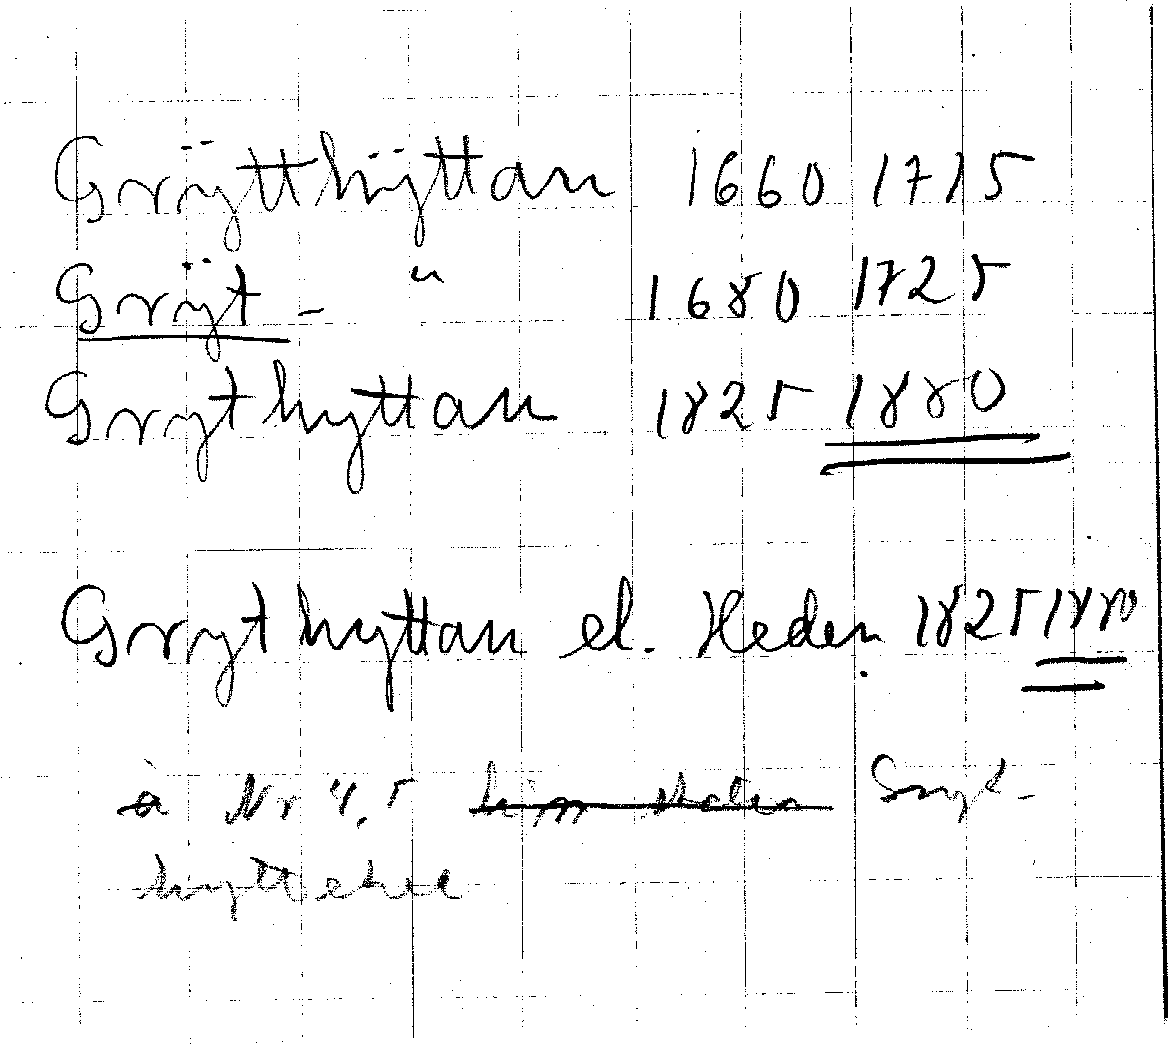 Grÿtthÿttan 1660 1715
Grÿt - " 1680 1725
Grythyttan 1825 1880
Grythyttan el. Heden 1825 1880
å Nr 4,5 Gryt-
hyttehed